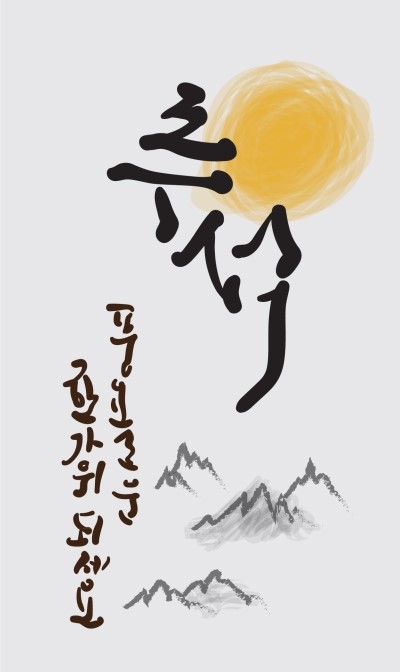 추석
풍요로운
한가위 되세요